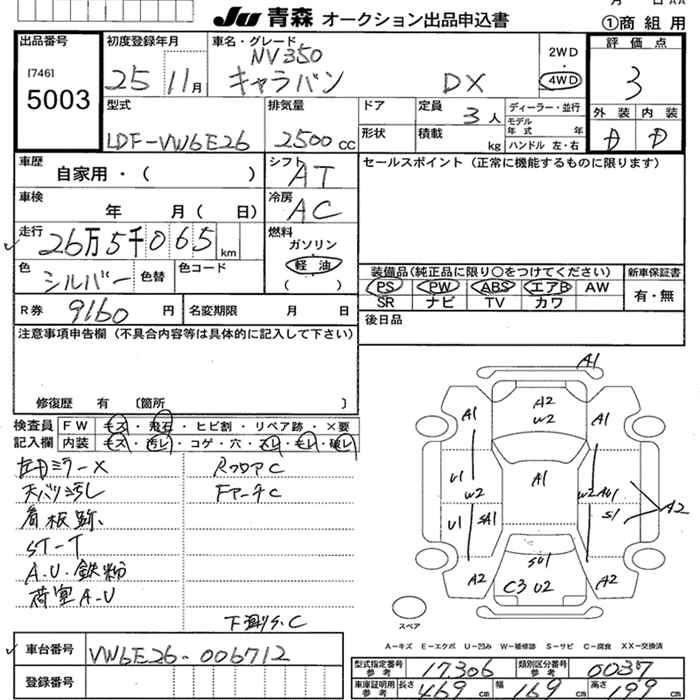 月 日 AA
JU 青森 オークション出品申込書
①商 組 用
出品番号
[746]
5003
初度登録年月
25 11月
車名・グレード
NV350
キャラバン DX
2WD
・
4WD
評 価 点
3
外 装 内 装
D D
型式
LDF-VW6E26
排気量
2500cc
ドア
形状
定員
3人
積載
kg
ディーラー・並行
モデル
年 式 年
ハンドル 左・右
車歴
自家用・( )
シフト
AT
セールスポイント (正常に機能するものに限ります)
車検
年 月( 日)
冷房
AC
走行
26万5千065km
燃料
ガソリン
軽 油
( )
色
シルバー
色替
色コード
装備品(純正品に限り〇をつけてください)
PS PW ABS エアB AW
SR ナビ TV カワ
新車保証書
有・無
R券
9160円
名変期限 月 日
後日品
注意事項申告欄 (不具合内容等は具体的に記入して下さい)
修復歴 有 〔箇所 〕
検査員
記入欄
FW キズ・飛石・ヒビ割・リペア跡・×要
内装 キズ・汚レ・コゲ・穴・スレ・モレ・破レ
左ドミラーX
RフロアC
天バリ汚し
FアーチC
看板跡、
ST-T
A.U.鉄粉
荷室A-U
下廻りC
A1
A2
W2
A1
A1
A1
U1
W2
U1
SA1
W2
AU1
S1
A2
SU1
A2
C3 U2
A2
スペア
A-キズ E-エクボ U-凹み W-補修跡 S-サビ C-腐食 XX-交換済
車台番号
VW6E26-006712
登録番号
型式指定番号
参考
17306
類別区分番号
参考
0037
車庫証明用
参考
長さ 469cm
幅 169cm
高さ 199cm